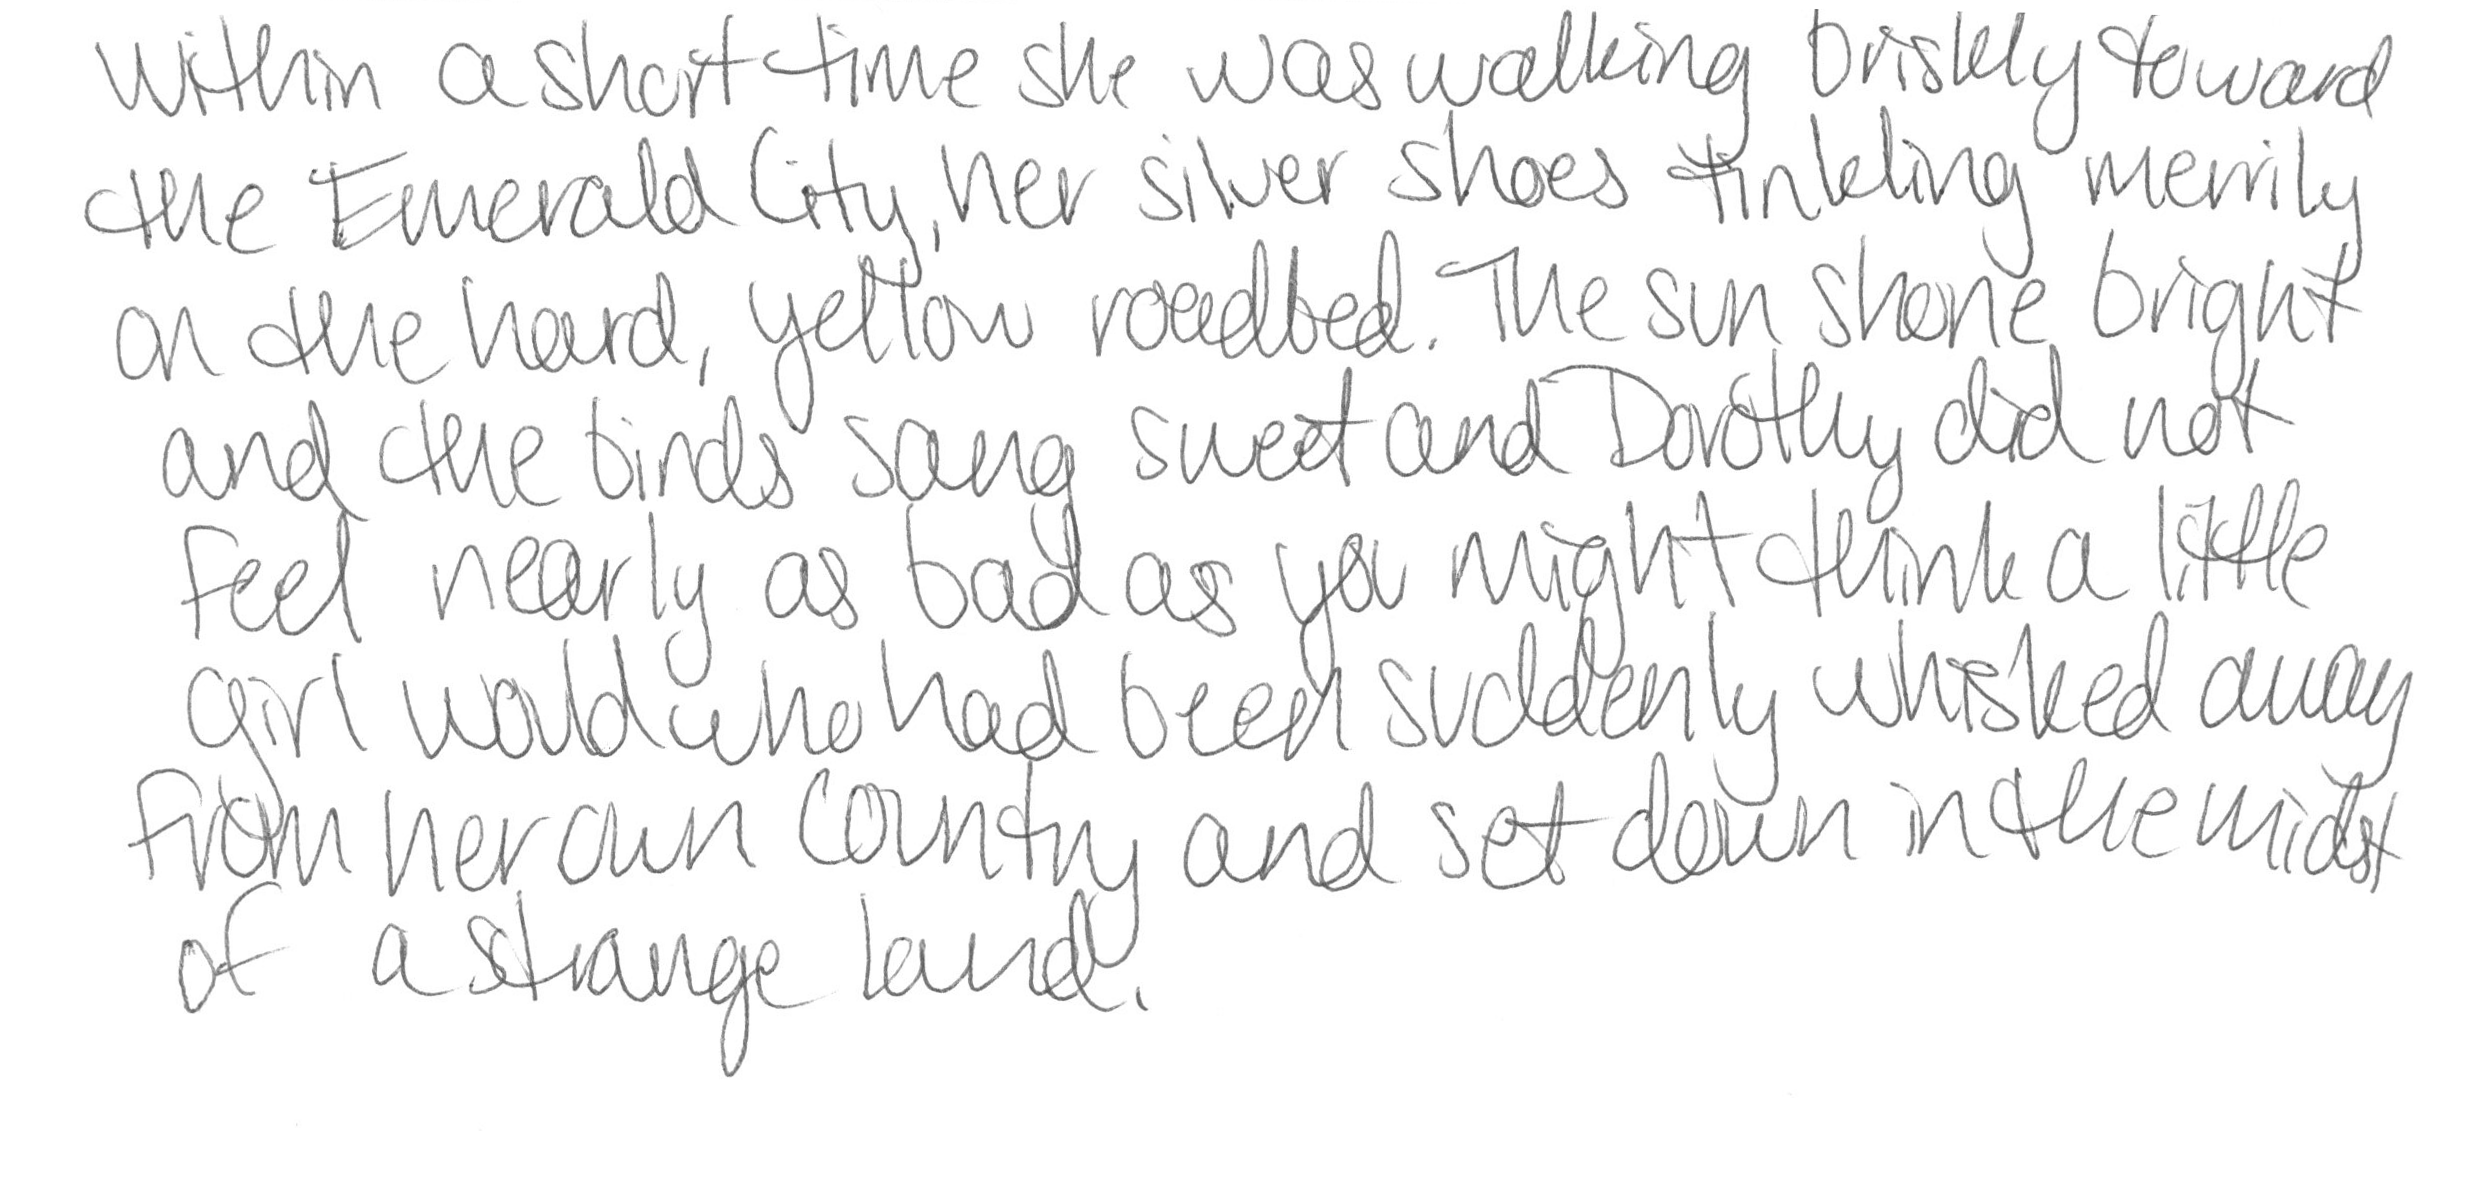 Within a short time she was walking briskly toward
the Emerald City, her silver shoes tinkling merrily
on the hard, yellow roadbed. The sun shone bright
and the birds sang sweet and Dorothy did not
feel nearly as bad as you might think a little
girl would who had been suddenly whisked away
from her own country and set down in the midst
of a strange land.